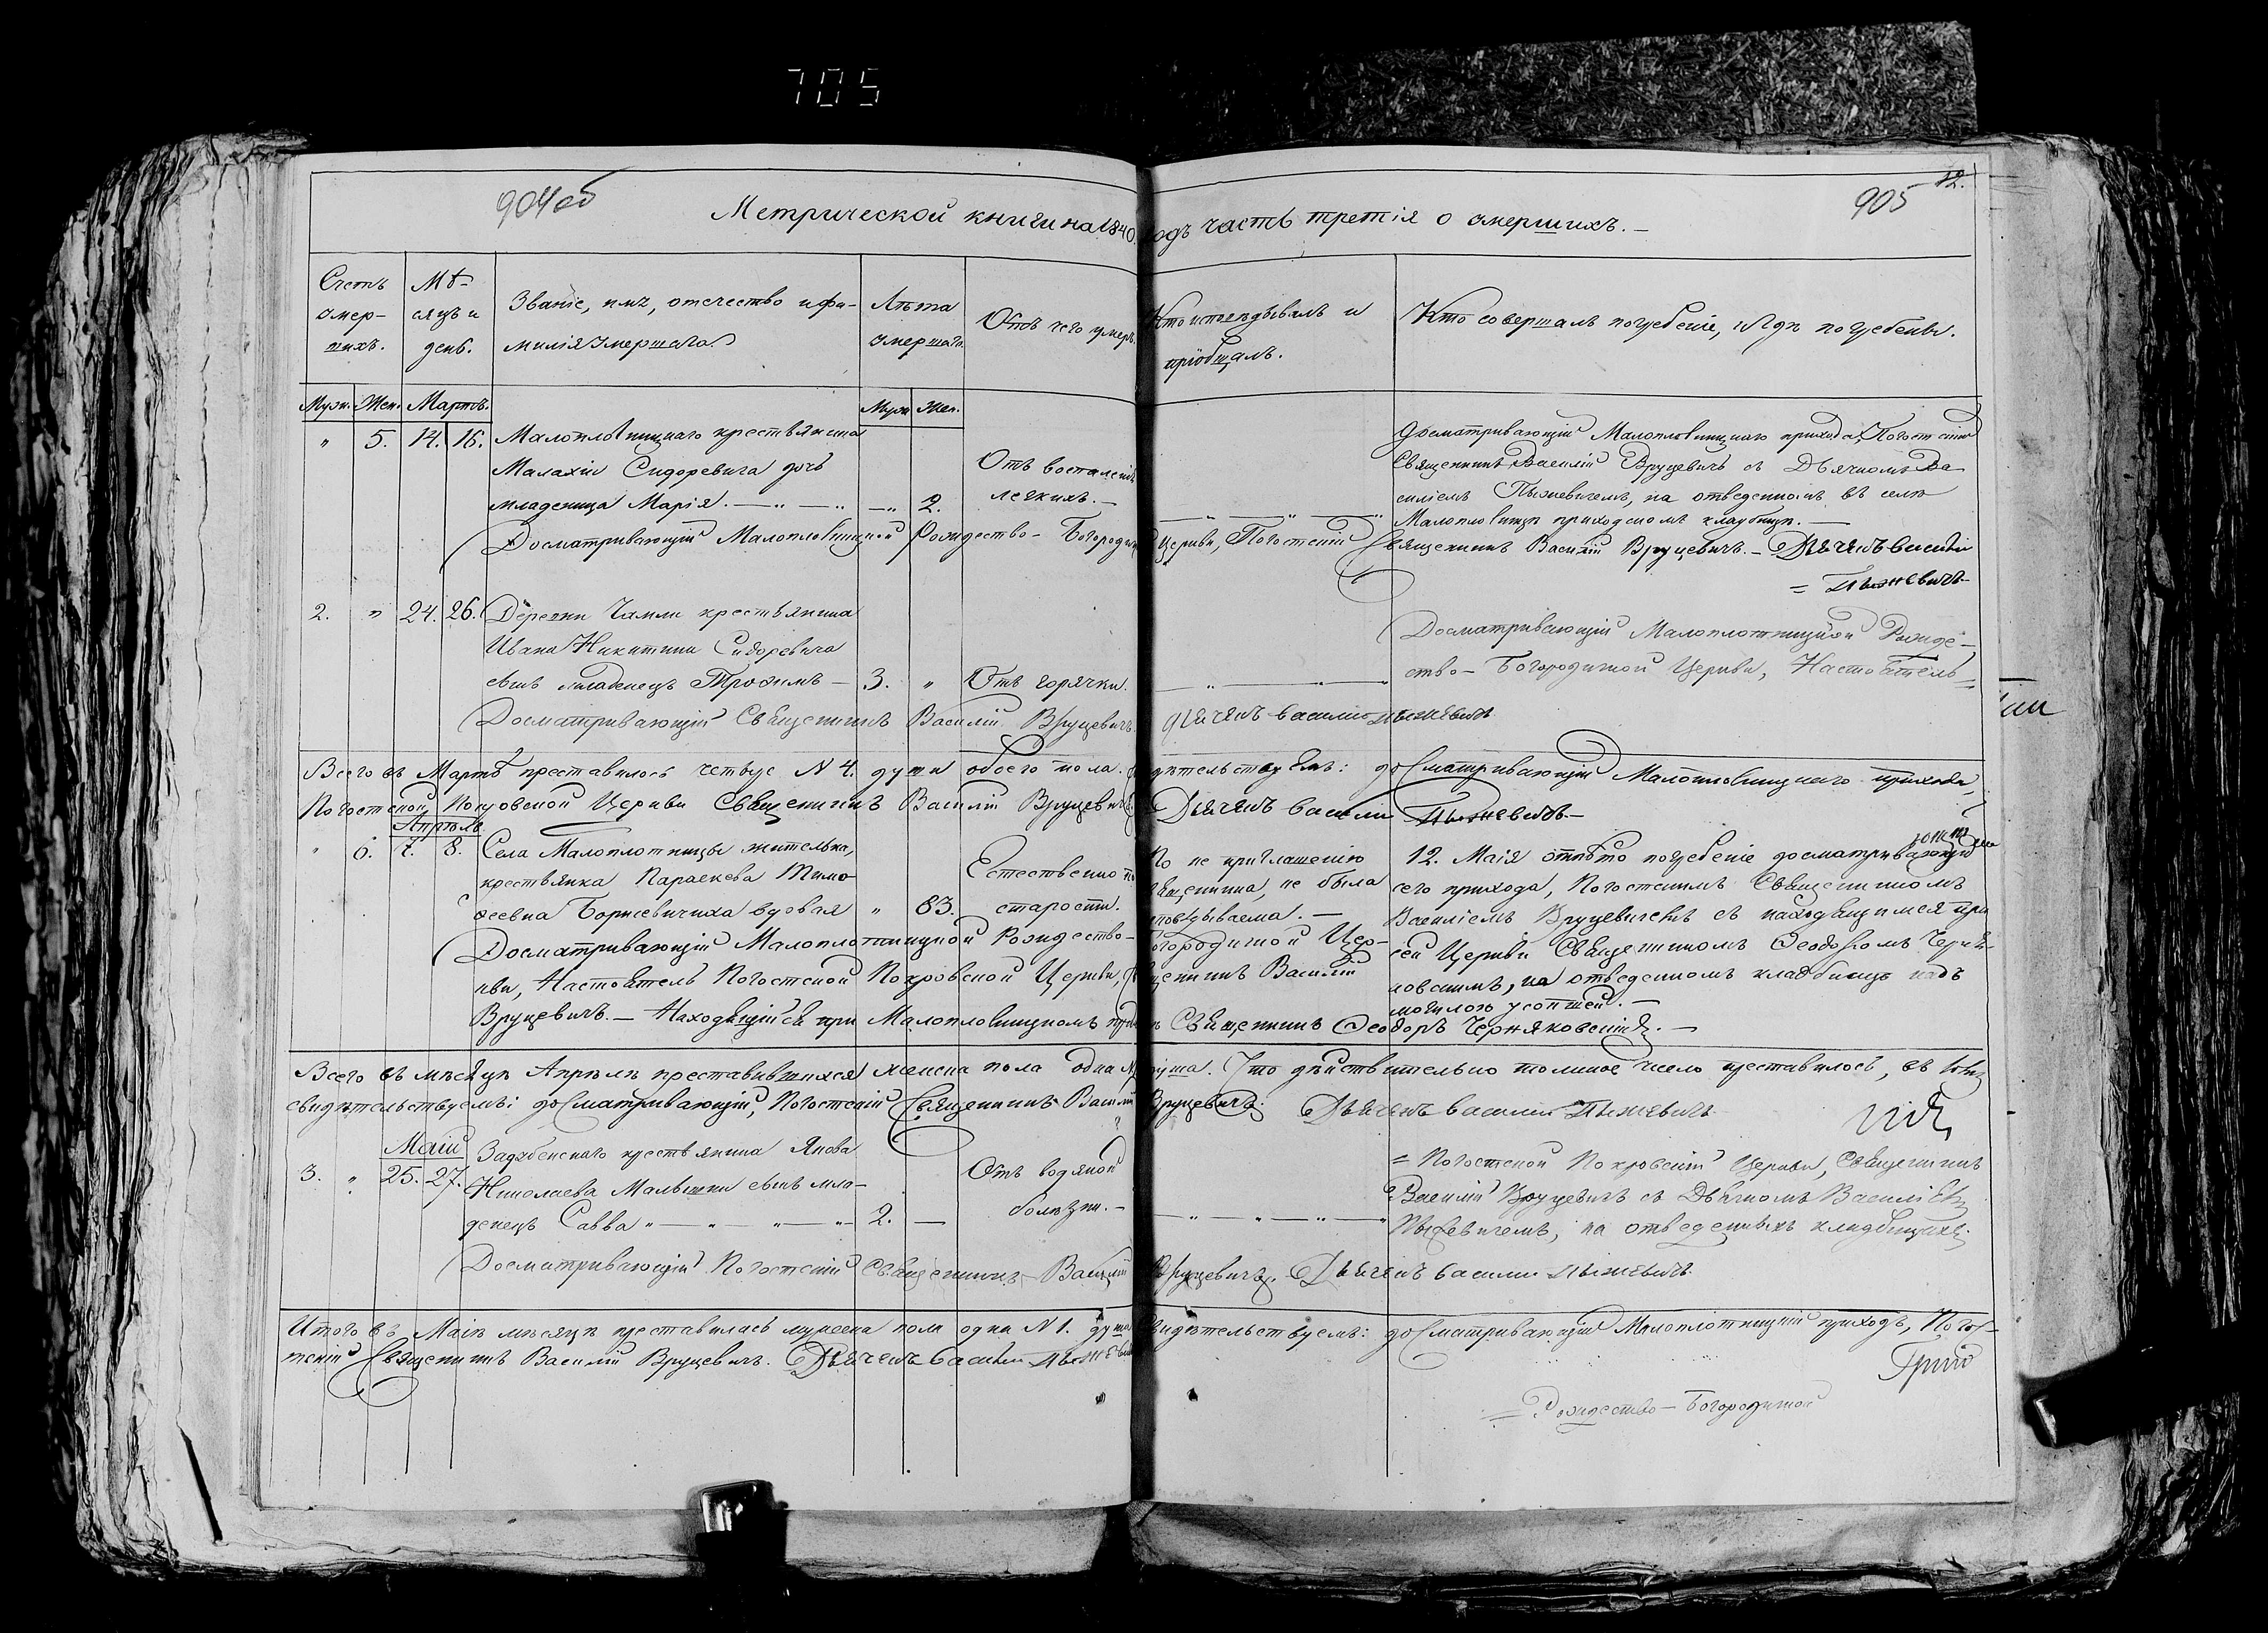 705
904об
905
12.
Метрической книги на 1840. годъ часть третія о умершихъ. —
Счетъ умер-шихъ.
Мѣ-сяцъ и день.
Званіе, имя, отечество и фа-
милія умершаго.
Лѣта умершаго.
Отъ чего умеръ.
Кто исповѣдывалъ и
пріобщалъ.
Кто совершалъ погребеніе, и гдѣ погребены.
Муж. Жен. Мартъ. Муж. Жен.
" 5. 14. 16. Малоплотницкаго крестьянина
Малахіи Сидоревича дочь
младеница Марія. — " — " — " 2.
Отъ воспаленія
легкихъ. —
Досматривающій Малоплотницкаго прихода, Погостскій
Священникъ Василій Вруцевичъ съ Дьячкомъ Ва
силіемъ Пыжевичемъ, на отведенномъ въ селѣ
Малоплотницѣ приходскомъ кладбищѣ. —
Досматривающій Малоплотницкой Рождество-Богородичной Церкви, Погостскій Священникъ Василій Вруцевичъ. — Дьячекъ Василій
= Пыжевичъ
2. " 24. 26. Деревни Чамли крестьянина
Ивана Никитина Сидоревича
сынъ младенецъ Трофимъ — 3. " Отъ горячки.
Досматривающій Малоплотницкой Рожде-
ство-Богородичной Церкви, Настоятель =
Досматривающій Священникъ Василій Вруцевичъ. Дьячекъ Василій Пыжевичъ
Всего въ Мартѣ преставилось четыре N 4. души обоего пола. Свидѣтельствуемъ: досматривающій Малоплотницкаго прихода,
Погостской Покровской Церкви Священникъ Василій Вруцевичъ. Дьячекъ Василій Пыжевичъ. —
Апрѣль
" 6. 7. 8. Села Малоплотницы жителька,
крестьянка Параскева Тимо
феевна Борисевичиха вдовая " 83.
Естественно по
старости.
По не приглашенію
священника, не была
исповѣдываема. —
12. Маія отпѣто погребеніе досматривающимъ
сего прихода, Погостскимъ Священникомъ
Василіемъ Вруцевичемъ съ находящимся при
сей Церкви Священникомъ Ѳеодоромъ Черня-
ковскимъ, на отведенномъ кладбищѣ надъ
могилою усопшей. —
Досматривающій Малоплотницкой Рождество-Богородичной Цер-
кви, Настоятель Погостской Покровской Церкви, Священникъ Василій
Вруцевичъ. — Находящійся при Малоплотницкомъ приходѣ Священникъ Ѳеодоръ Черняковскій. —
Всего въ мѣсяцѣ Апрѣлѣ преставившихся женска пола одна душа. Что дѣйствительно толикое число преставилось, въ томъ
свидѣтельствуемъ: досматривающій, Погостскій Священникъ Василій Вруцевичъ. Дьячекъ Василій Пыжевичъ
Маій
3. " 25. 27. Задубенскаго крестьянина Якова
Николаева Малышки сынъ мла-
денецъ Савва " — " — " — " — 2. —
Отъ водяной
болѣзни. —
= Погостской Покровскій Церкви, Священникъ
Василій Вруцевичъ съ Дьячкомъ Василіемъ
Пыжевичемъ, на отведенныхъ кладбищахъ.
Досматривающій Погостскій Священникъ Василій Вруцевичъ. Дьячекъ Василій Пыжевичъ.
Итого въ Маіѣ мѣсяцѣ преставилась мужеска пола одна N 1. душа. Свидѣтельствуемъ: досматривающій Малоплотницкій приходъ, Погос-
тскій Священникъ Василій Вруцевичъ. Дьячекъ Василій Пыжевичъ
= Рождество-Богородичной